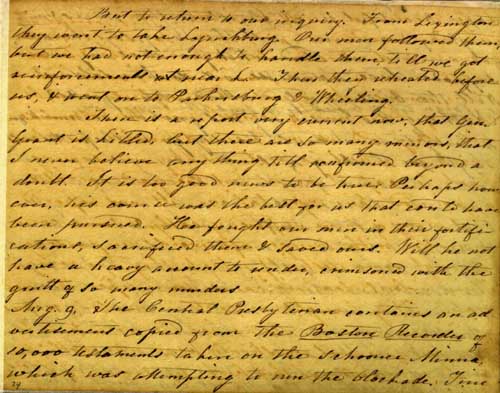 But to return to our inquiry. From Lexington
they went to take Lynchburg. Our men followed them
but we had not enough to handle them, till we got
reinforcements at near L. Then they retreated before
us, & went on to Parkersburg & Wheeling.
There is a report very current now, that Gen
Grant is killed, but there are so many rumors, that
I never believe any thing till confirmed beyond a
doubt. It is too good news to be true. Perhaps how
ever, his course was the best for us that could have
been pursued. He fought our men in their fortifi
cations, sacrificed them & saved ours. Will he not
have a heavy account to render, crimsoned with the
guilt of so many murders
Aug. 9. The Central Presbyterian contains an ad
vertisement copied from the Boston Recorder of
10,000 testaments taken on the schooner Minna,
which was attempting to run the blockade. Fine
24